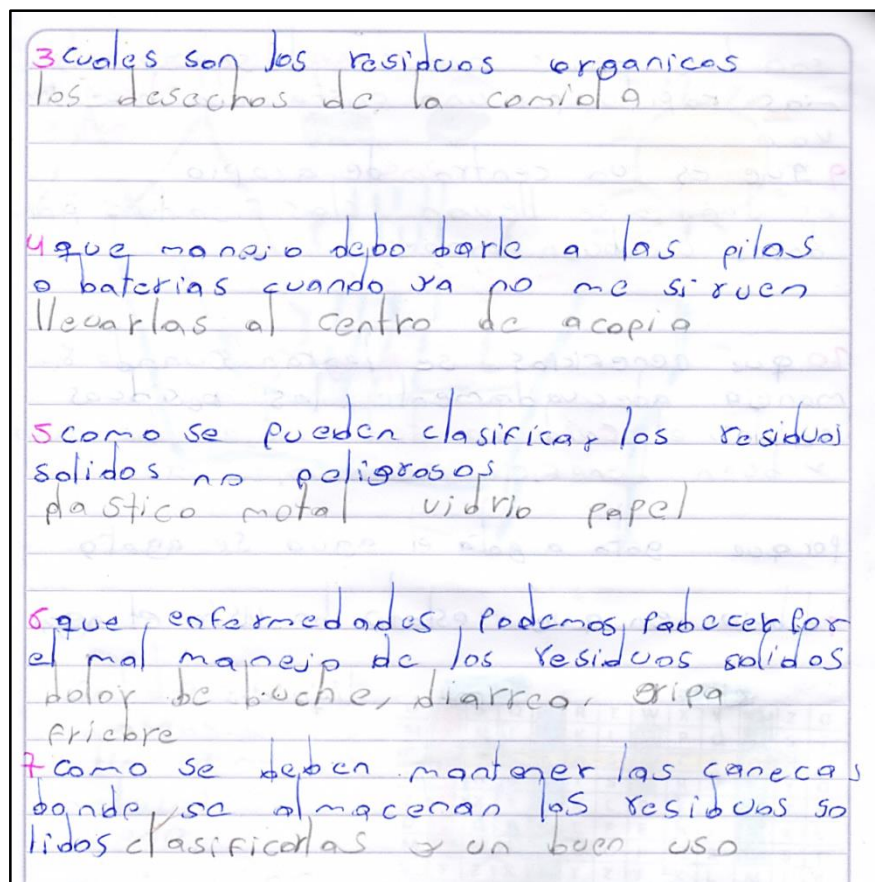 3 cuales son los residuos organicos
los desechos de la comida
4 que manejo debo darle a las pilas
o baterias cuando ya no me sirven
llevarlas al centro de acopio
5 como se pueden clasificar los residuos
solidos no peligrosos
plastico metal vidrio papel
6 que enfermedades podemos padecer por
el mal manejo de los residuos solidos
dolor de buche, diarrea, gripa
friebre
7 como se deben mantener las canecas
donde se almacenan los residuos so
lidos clasificarlas y un buen uso